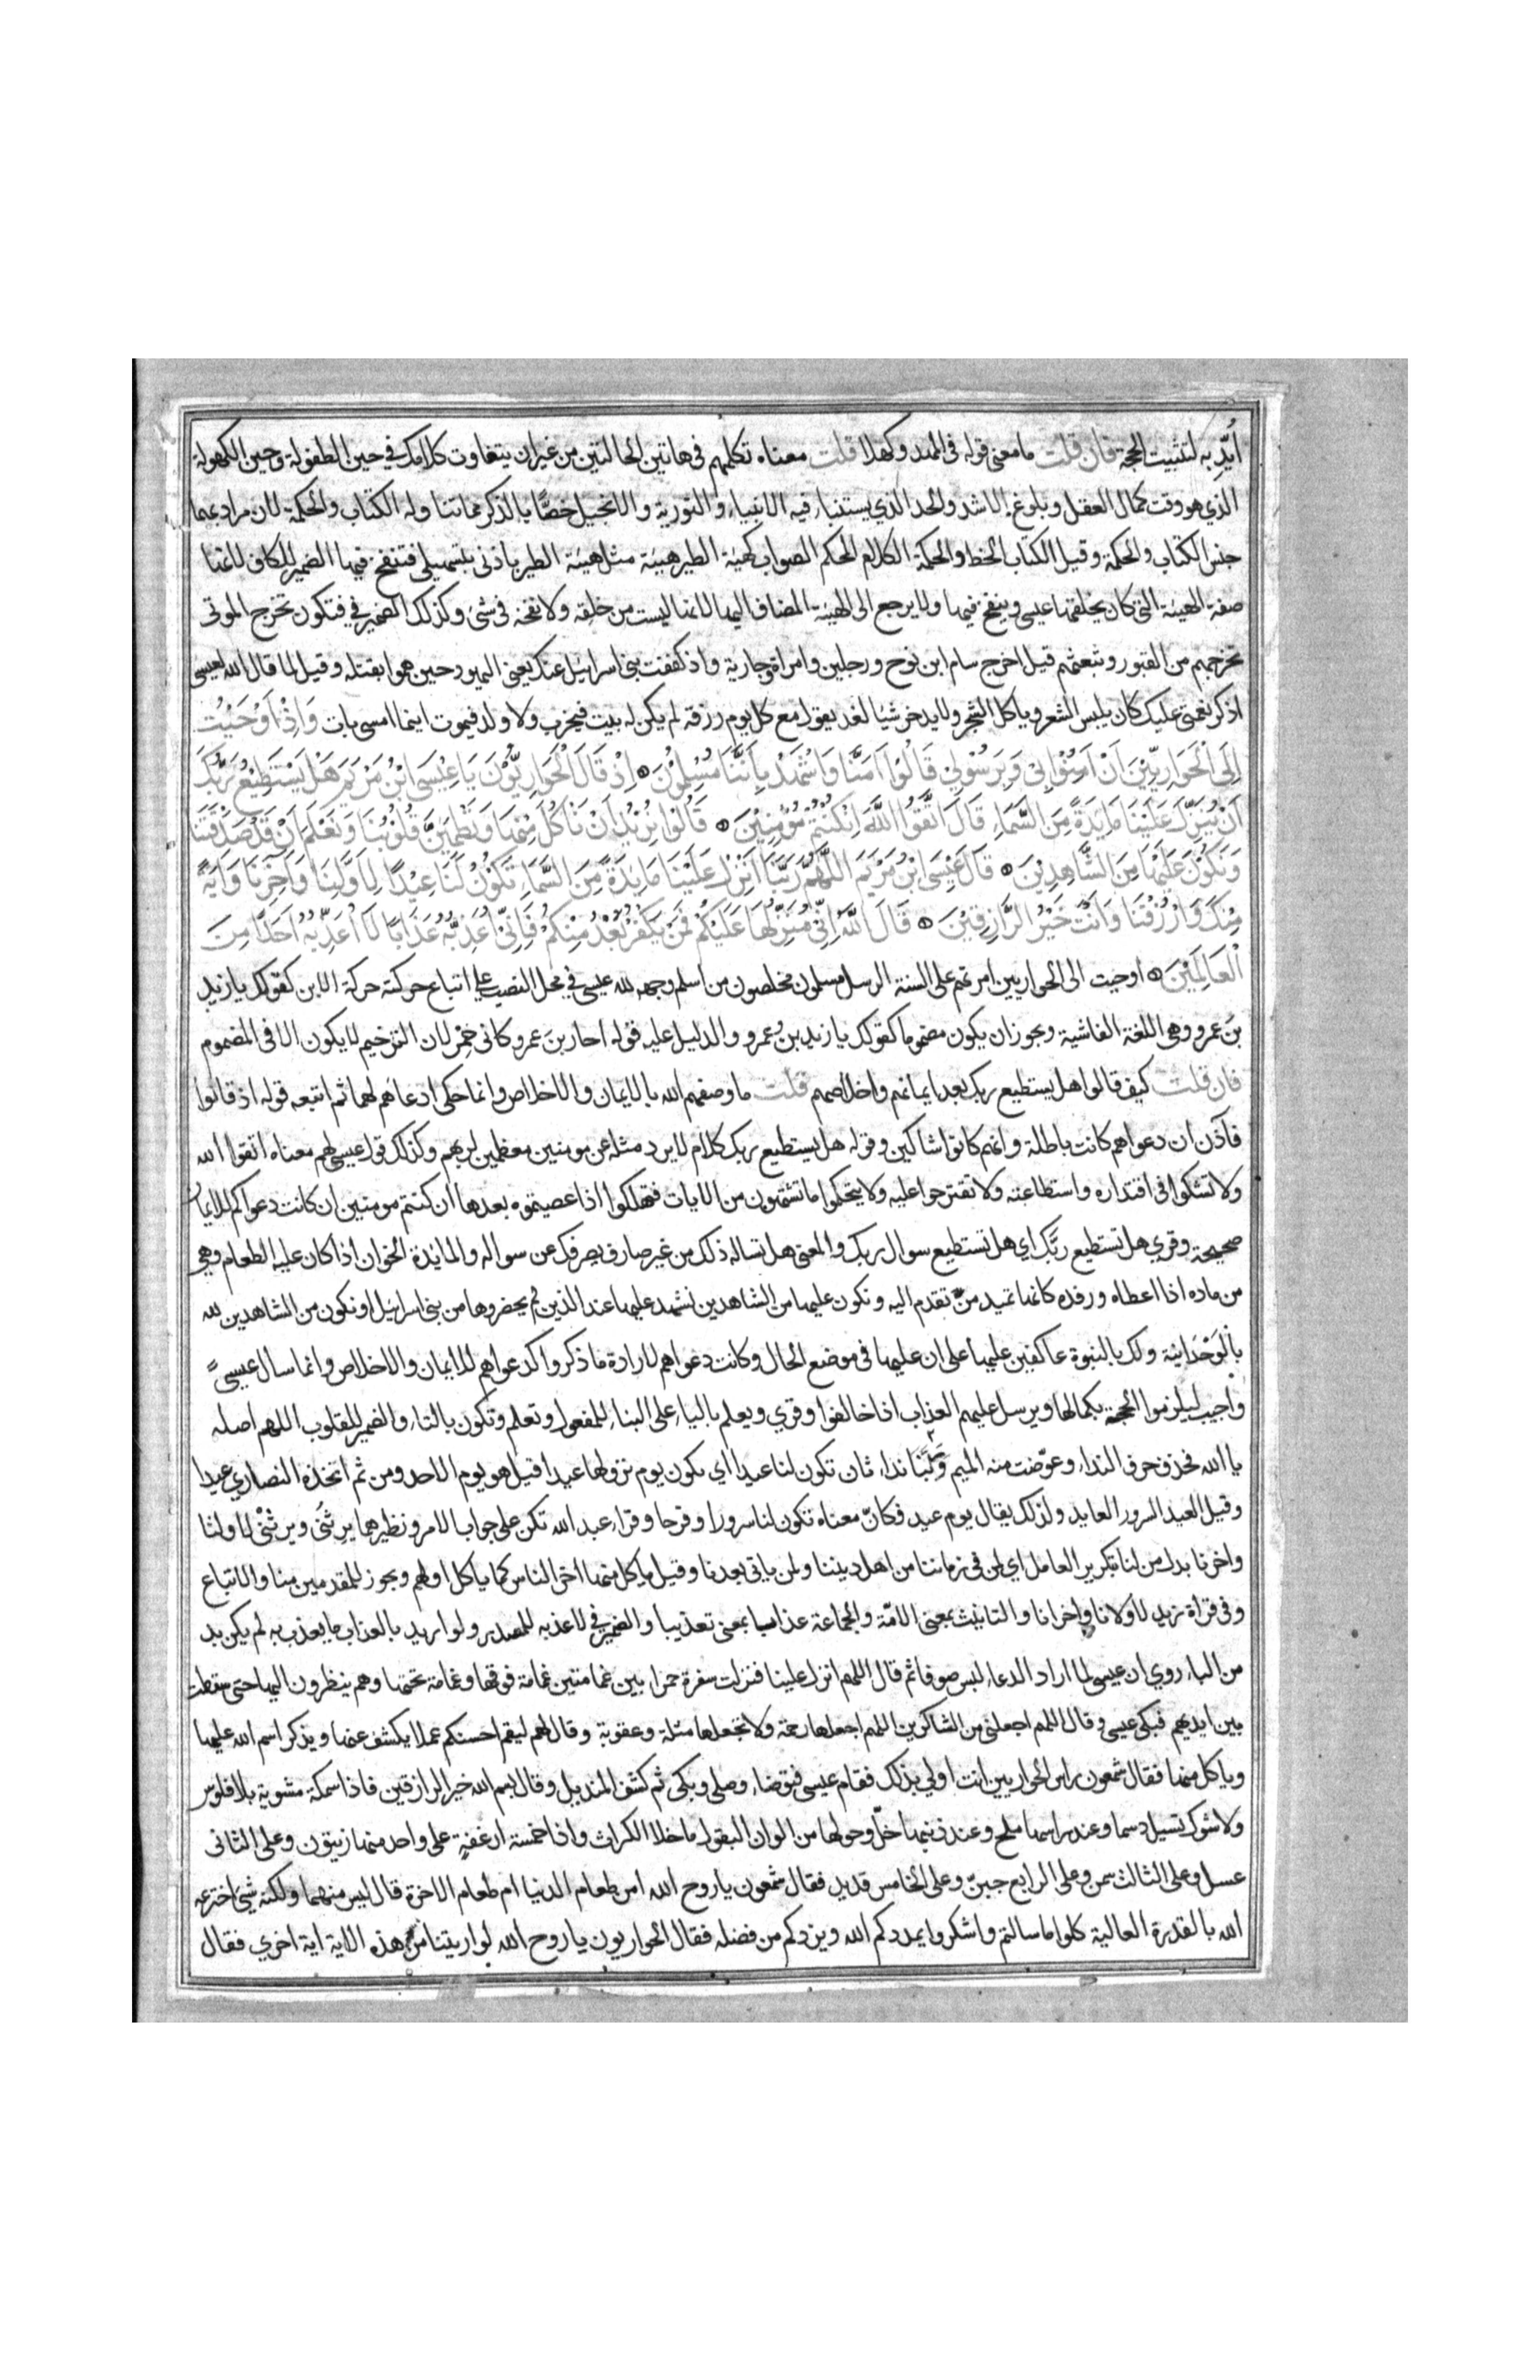 أيّد به لتثبيت الحجة فان قلت ما معنى قوله فى المهد وكهلا قلت معناه تكلمهم فى هاتين الحالتين من غير ان يتفاوت كلامك في حين الطفولة وحين الكهولة
الذي هو وقت كمال العقل وبلوغ الاشد والحد الذي يستنباء فيه الانبياء والتورية والانجيل خصّا بالذكر مما تناوله الكتاب والحكمة لان مراد بهما
جنس الكتاب والحكمة وقيل الكتاب الخط والحكمة الكلام المحكم الصواب كهيئة الطير هيئة مثل هيئة الطير باذنى بتسهيلى فتنفخ فيها الضمير للكاف لانها
صفة الهيئة التى كان يخلقها عيسى وينفخ فيها ولا يرجع الى الهيئة المضاف اليها لانها ليست من خلقه ولا نفخه فى شئ وكذلك الضمير في فتكون تخرج الموتى
تخرجهم من القبور وتبعثهم قيل اخرج سام ابن نوح ورجلين وامراة وجارية واذ كففت بنى اسرايل عنك يعنى اليهود حين هموا بقتله وقيل لما قال الله لعيسى
اذكر نعمتى عليك كان يلبس الشعر وياكل الشجر ولا يدخر شيا لغد يقول مع كل يوم رزقه لم يكن له بيت فيخرب ولا ولد فيموت اينما امسى بات وَاِذْ اَوْحَيْتُ
اِلَى الْحَوَارِيّيْنَ اَنْ آمِنُوْا بِىْ وَبِرَسُوْلِىْ قَالُوْا آمَنَّا وَاشْهَدْ بِاَنَّنَا مُسْلِمُوْنَ اِذْ قَالَ الْحَوَارِيُّوْنَ يَا عِيْسَى ابْنُ مَرْيَمَ هَلْ يَسْتَطِيْعُ رَبُّكَ
اَنْ يُنَزِّلَ عَلَيْنَا مَايِدَةً مِنَ السَّمَاءِ قَالَ اتَّقُوْا اللَّهَ اِنْ كُنْتُمْ مُؤْمِنِيْنَ قَالُوْا نُرِيْدُ اَنْ نَاْكُلَ مِنْهَا وَتَطْمَيِنَّ قُلُوْبُنَا وَنَعْلَمَ اَنْ قَدْ صَدَقْتَنَا
وَنَكُوْنَ عَلَيْهَا مِنَ الشَّاهِدِيْنَ قَالَ عِيْسَى ابْنُ مَرْيَمَ اللَّهُمَّ رَبَّنَا اَنْزِلْ عَلَيْنَا مَايِدَةً مِنَ السَّمَاءِ تَكُوْنُ لَنَا عِيْدًا لِاَوَّلِنَا وَآخِرِنَا وَآيَةً
مِنْكَ وَارْزُقْنَا وَاَنْتَ خَيْرُ الرَّازِقِيْنَ قَالَ اللَّهُ اِنِّىْ مُنَزِّلُهَا عَلَيْكُمْ فَمَنْ يَكْفُرْ بَعْدُ مِنْكُمْ فَاِنِّىْ اُعَذِّبُهُ عَذَابًا لَا اُعَذِّبُهُ اَحَدًا مِنَ
الْعَالَمِيْنَ اوحيت الى الحواريين امرتهم على السنة الرسل مسلمون مخلصون من اسلم وجهه لله عيسى فى محل النصب على اتباع حركته حركة الابن كقولك يا زيد
بنَ عمرو وهى اللغة الفاشية ويجوز ان يكون مضموما كقولك يا زيد بن عمرو والدليل عليه قوله احار بنَ عمرو كانى خمر لان الترخيم لا يكون الا فى المضموم
فان قلت كيف قالوا هل يستطيع ربك بعد ايمانهم واخلاصهم قلت ما وصفهم الله بالايمان والاخلاص وانما حكى ادعاهم لهما ثم اتبعه قوله اذ قالوا
فآذن ان دعواهم كانت باطلة وانهم كانوا شاكين وقوله هل يستطيع ربك كلام لا يرد مثله عن مومنين معظمين لربهم وكذلك قول عيسى لهم معناه اتقوا الله
ولا تشكوا فى اقتداره واستطاعته ولا تقترحوا عليه ولا يتحكموا ما تشتهون من الايات فتهلكوا اذا عصيتموه بعدها ان كنتم مومنين ان كانت دعواكم للايمان
صحيحة وقري هل تستطيع ربَّك اي هل تستطيع سوال ربك والمعنى هل تساله ذلك من غير صارف يصرفك عن سواله والمايدة الخوان اذا كان عليه الطعام وهي
من ماده اذا اعطاه ورفده كانها تميد من تقدم اليه ونكون عليها من الشاهدين نشهد عليها عند الذين لم يحضروها من بنى اسرايل او نكون من الشاهدين لله
بالْوَحْدَانِيّة ولك بالنبوة عاكفين عليها على ان عليها فى موضع الحال وكانت دعواهم لارادة ما ذكروا كدعواهم للايمان والاخلاص وانما سال عيسى
واجيب ليلزموا الحجة بكمالها ويرسل عليهم العذاب اذا خالفوا وقري ويعلم بالياء على البناء للمفعول وتعلم وتكون بالتاء والضمير للقلوب اللهم اصله
يا الله فحذف حرف النداء وعوّضت منه الميم وَرَبَّنَا نداء ثان تكون لنا عيدا اي يكون يوم نزولها عيدا قيل هو يوم الاحد ومن ثم اتخذه النصارى عيدا
وقيل العيد السرور العايد ولذلك يقال يوم عيد فكانّ معناه تكون لنا سرورا وفرحا وقراء عبد الله تكن على جواب الامر ونظيرهما يرِثُنى ويرثْنى لاولنا
واخرنا بدل من لنا بتكرير العامل اي لمن فى زماننا من اهل ديننا ولمن ياتى بعدنا وقيل ياكل منها اخر الناس كما ياكل اولهم ويجوز للمقدمين منا والاتباع
وفى قراة زيد لاولانا واخرانا والتانيث بمعنى الامّة والجماعة عذابا بمعنى تعذيبا والضمير في لا اعذبه للمصدر ولو اريد بالعذاب ما يعذب به لم يكن بد
من الباء روي ان عيسى لما اراد الدعاء لبس صوفا ثم قال اللهم انزل علينا فنزلت سفرة حمرا بين غمامتين غمامة فوقها وغمامة تحتها وهم ينظرون اليها حتى سقطت
بين ايديهم فبكى عيسى وقال اللهم اجعلنى من الشاكرين اللهم اجعلها رحمة ولا تجعلها مثلة وعقوبة وقال لهم ليقم احسنكم عملا يكشف عنها ويذكر اسم الله عليها
وياكل منها فقال شمعون راس الحواريين انت اولي بذلك فقام عيسى فتوضاء وصلى وبكى ثم كشف المنديل وقال بسم الله خير الرازقين فاذا سمكة مشوية بلا فلوس
ولا شوك تسيل دسما وعند راسها ملح وعند ذنبها خلّ وحولها من الوان البقول ما خلا الكراث واذا خمسة ارغفةٍ على واحد منها زيتون وعلى الثانى
عسل وعلى الثالث سمن وعلى الرابع جبنّ وعلى الخامس قديد فقال شمعون يا روح الله امن طعام الدنيا ام طعام الاخرة قال ليس منهما ولكنه شئ اخترعه
الله بالقدرة العالية كلوا ما سالتم واشكروا يمددكم الله ويزدكم من فضله فقال الحواريون يا روح الله لو اريتنا من هذه الاية اية اخري فقال